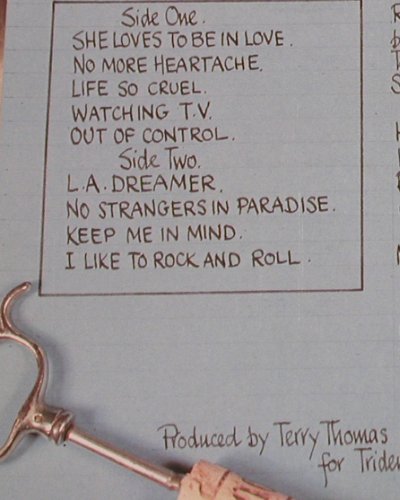 Side One.
SHE LOVES TO BE IN LOVE.
NO MORE HEARTACHE.
LIFE SO CRUEL.
WATCHING T.V.
OUT OF CONTROL.
Side Two.
L.A. DREAMER.
NO STRANGERS IN PARADISE.
KEEP ME IN MIND.
I LIKE TO ROCK AND ROLL.
Produced by Terry Thomas
for